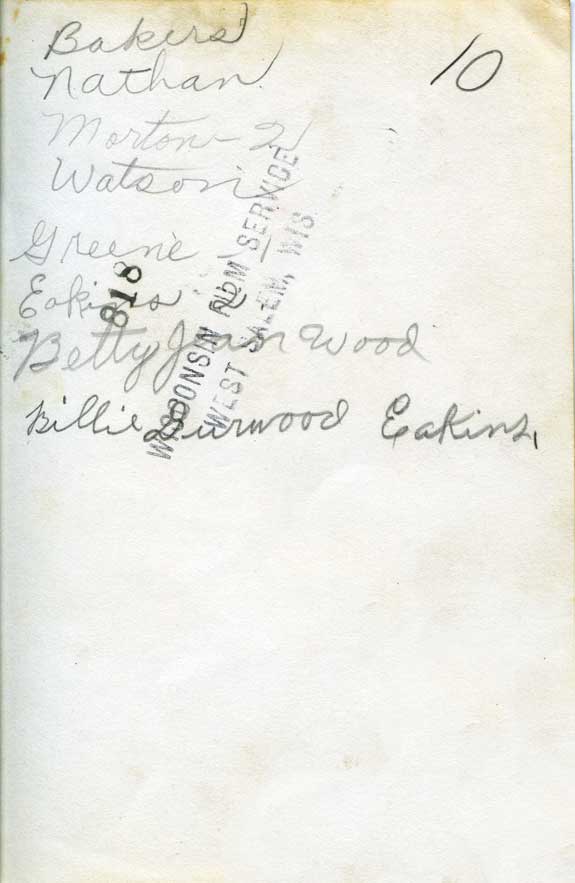 Bakers
Nathan
10
Morton - 2
Watson
Greene
Eakins 2
Betty Jean Wood
Billie Durwood Eakins,
818
WISCONSIN FILM SERVICE
WEST SALEM, WIS.